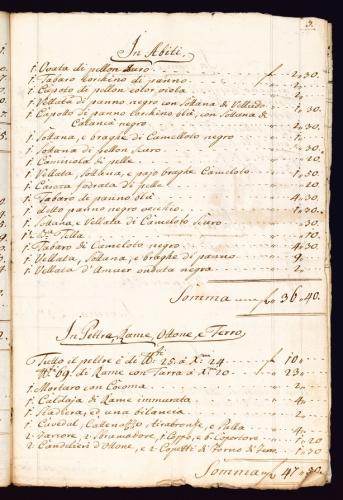 3.
In Abiti.
1. Ovata di pellon scuro f 2,, 30.
1. Tabaro torchino di panno
1. Capoto di pellon color viola 2.
1. Vellata di panno negro con sottana di Velludo 1,, 30.
1. Capotto di panno torchino blú, con sottana de
Catanca negro 1,, 30.
1. Sottana, e braghe di Camelotto negro 30.
1. Sottana di pellon scuro 30.
1. Caminiola di pelle 20.
1. Vellata, sottana, e pajo braghe Cameloto 1,, 30.
1. Casaca fodrata di pelle 20.
1. Tabaro di panno blú 4,, 30.
1. detto panno negro vecchio 1,, 30.
1. Sottana, e Vellata di Cameloto scuro 30.
Tella 10.
1. Tabaro di Cameloto negro 4,, 30.
1. Vellata, Sottana, e braghe di panno 9.
1. Vellata d'Amuer ondata negra 2.
Somma f 36,, 40.
In Peltre, Rame, Ottone, e Ferro,
Tutto il peltre é di 25. à 24. f 10.
69. di Rame con Tarra à 20. 23.
1. Mortaro con Cocoma 2.
1. Caldaja di Rame immurata 4.
1. Stadiera, ed una bilancia 2.
1. Cavedal, Cattenazzo, e Palla 4.
2. 1. Ceppo, e 6. Copertore 1,, 20
2. Candelieri d'Ottone, e 2. di Forno di ferro 30.
Somma f 47,, 30.